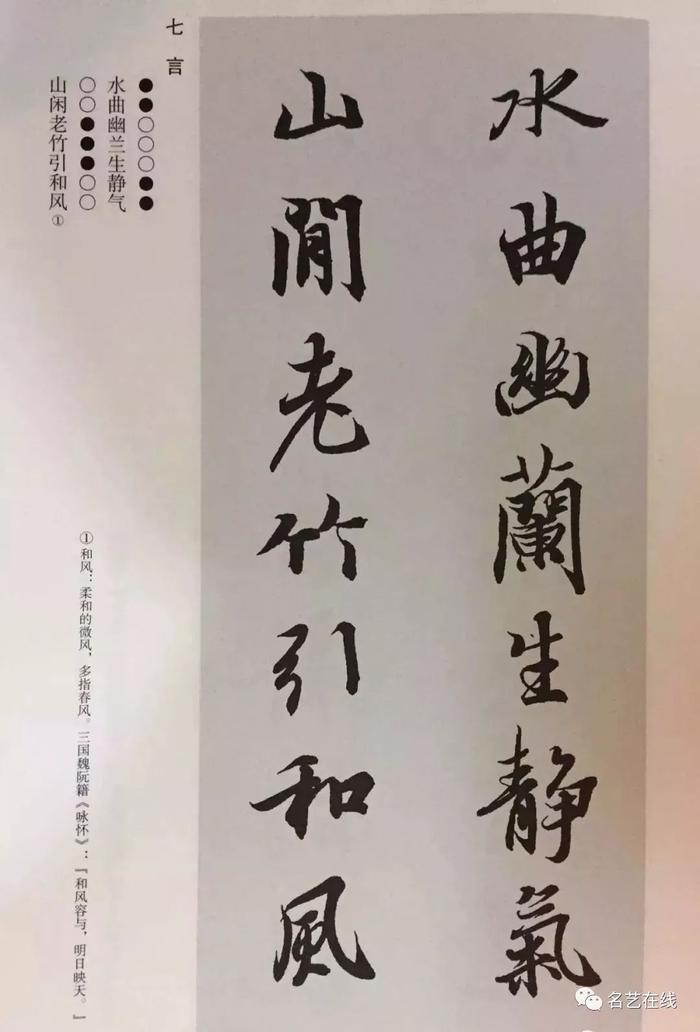 水曲幽蘭生静氣
山閒老竹引和風
七言
●●○○○●●
水曲幽兰生静气
○○●●●○○
山闲老竹引和风①
①和风：柔和的微风，多指春风。三国魏阮籍《咏怀》：『和风容与，明日映天。』
名艺在线